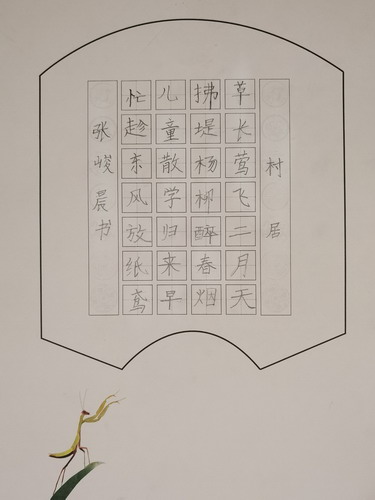 村居
草长莺飞二月天
拂堤杨柳醉春烟
儿童散学归来早
忙趁东风放纸鸢
张峻晨书